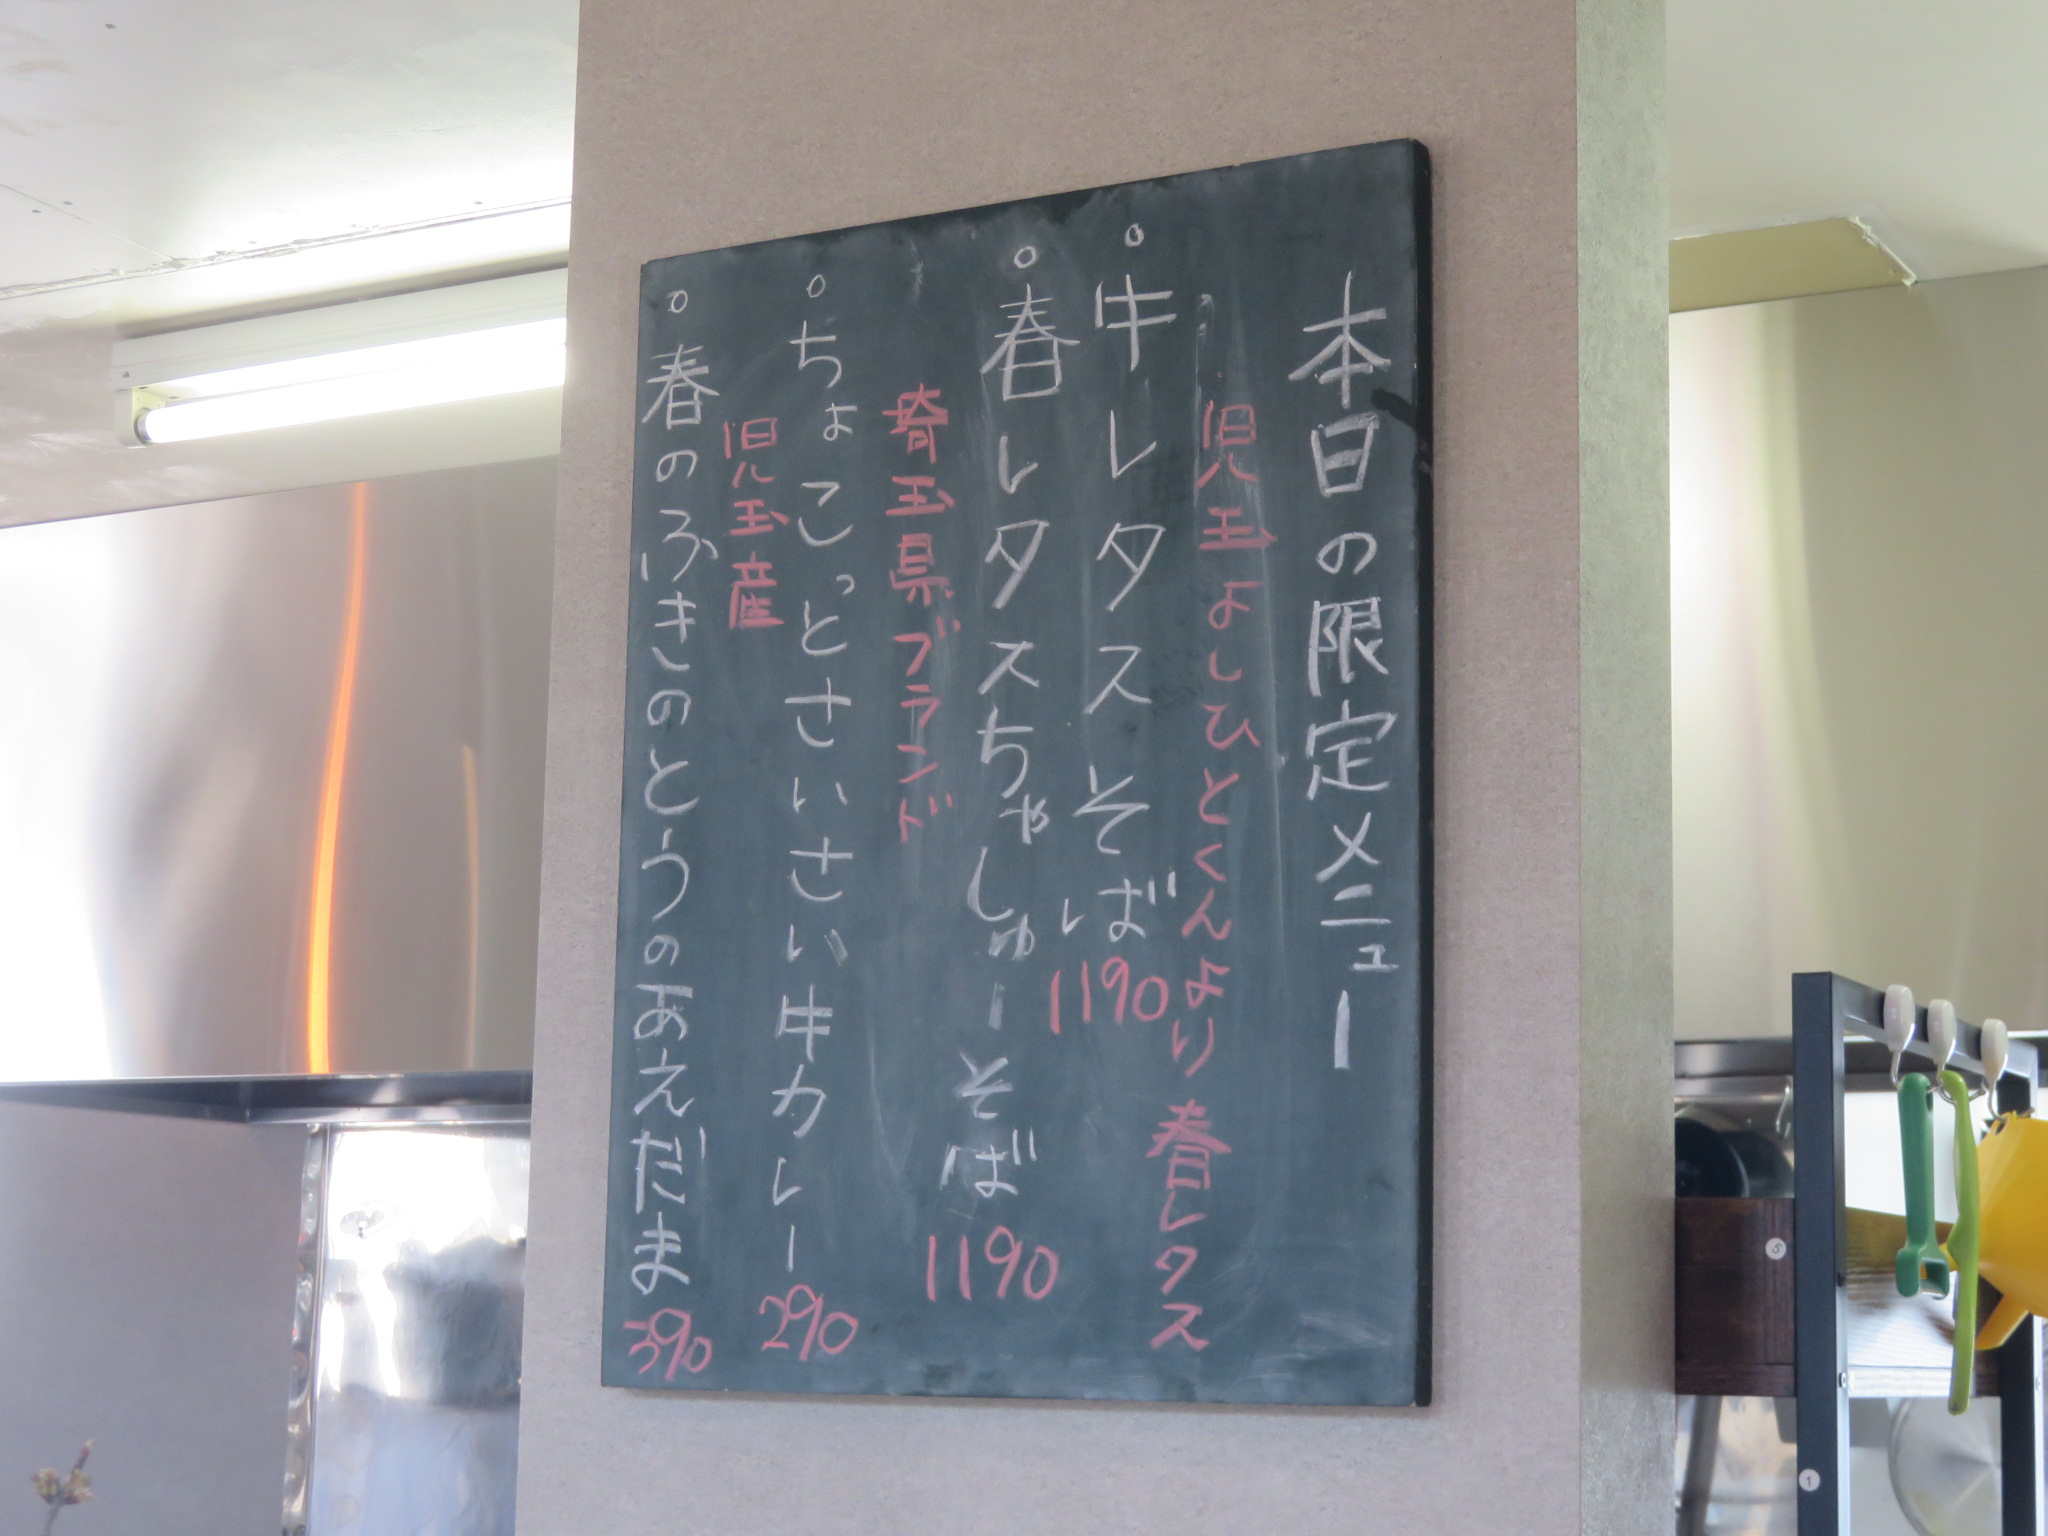 本日の限定メニュー
児玉よしひとくんより 春レタス
○牛レタスそば 1190
○春レタスちゃしゅーそば 1190
埼玉県ブランド
○ちょこっとさいさい牛カレー 290
児玉産
○春のふきのとうのあえだま 390
5
1